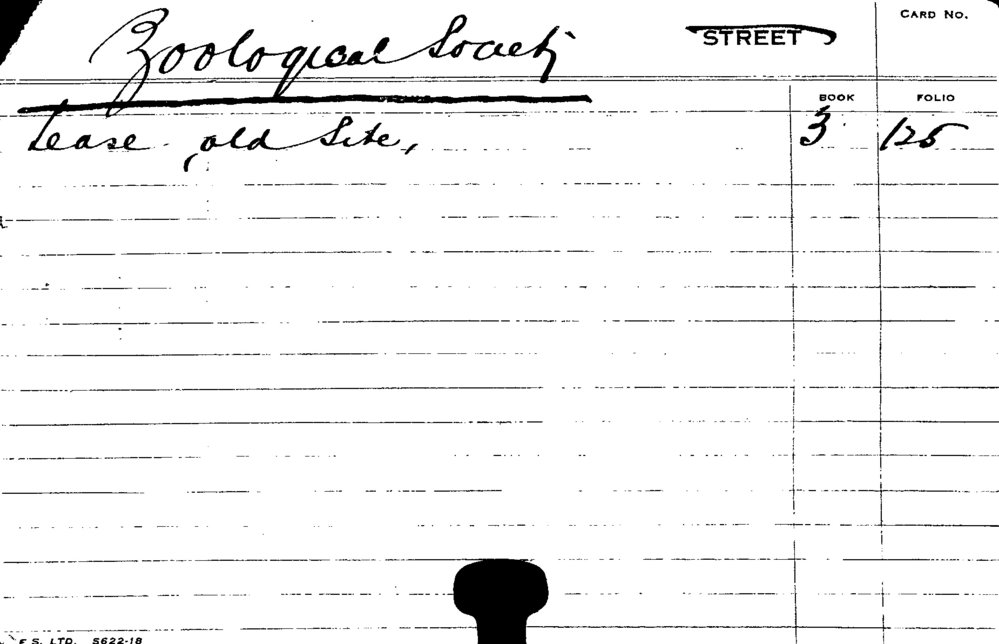 Zoological Society STREET CARD NO.
BOOK FOLIO
Lease (old Site, 3 125
F.S. LTD. S622-18